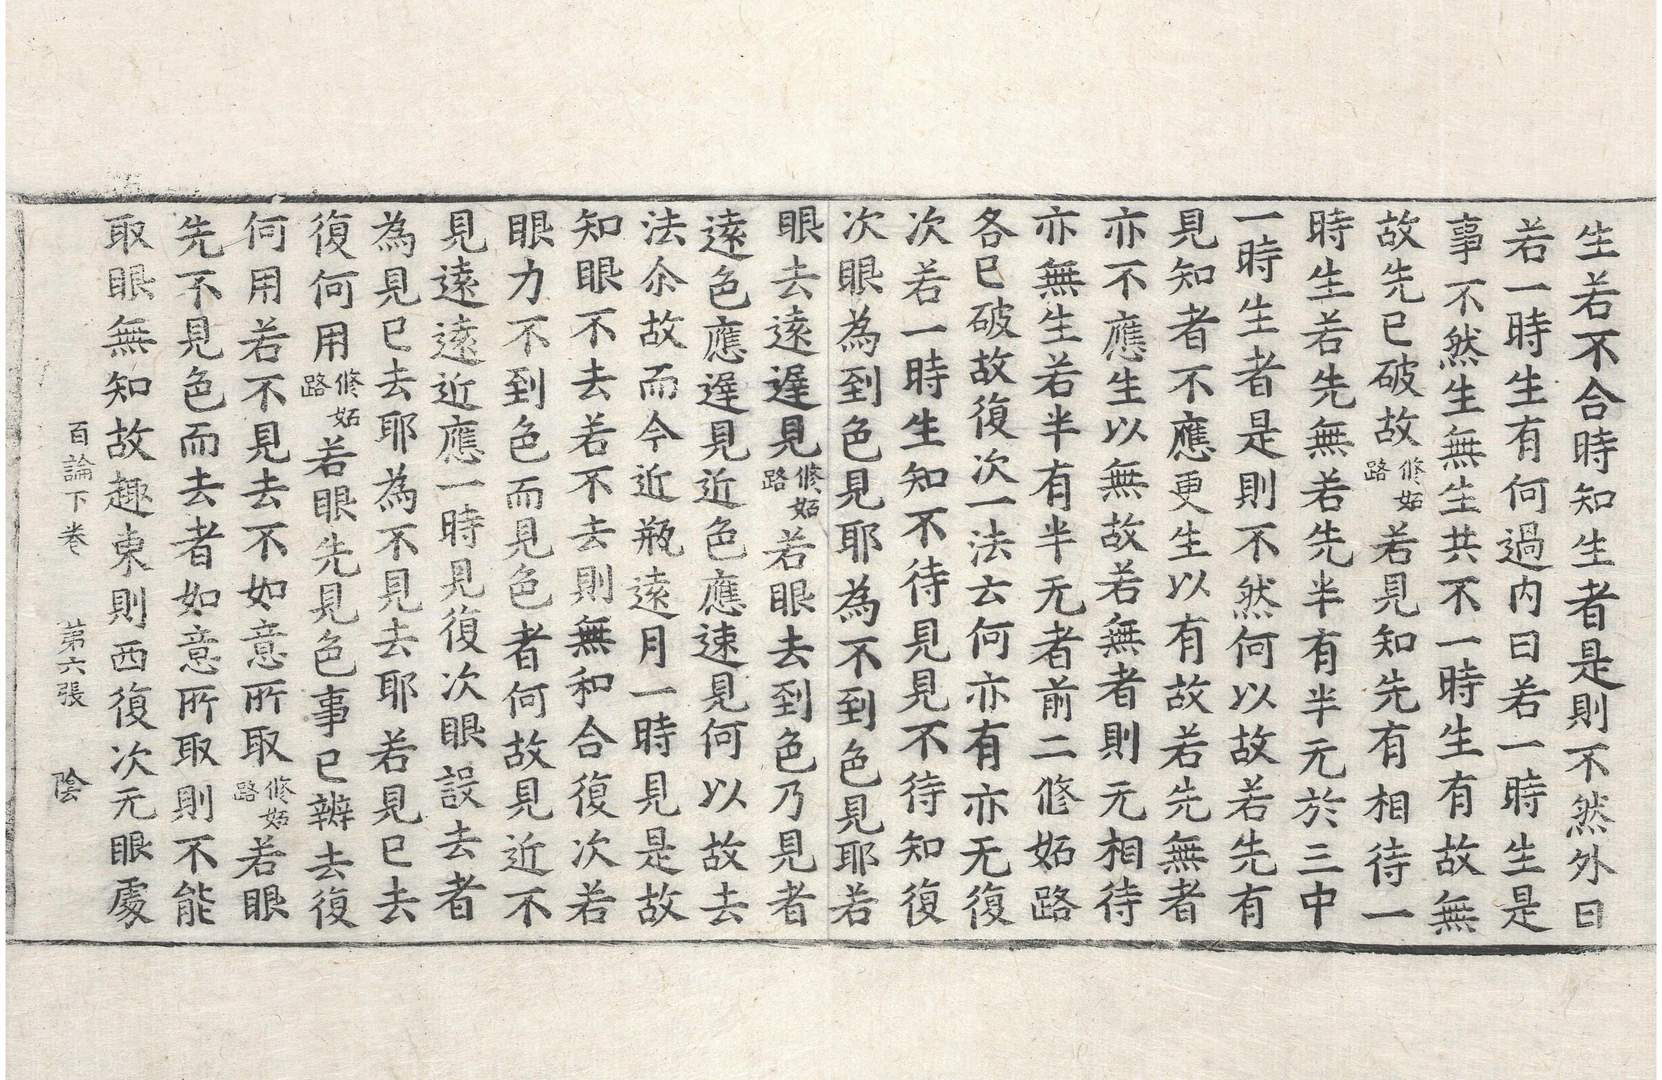 生若不合時知生者是則不然外曰
若一時生有何過内曰若一時生是
事不然生無生共不一時生有故無
故先已破故修妬路若見知先有相待一
時生若先無若先半有半无於三中
一時生者是則不然何以故若先有
見知者不應更生以有故若先無者
亦不應生以無故若無者則无相待
亦無生若半有半无者前二修妬路
各已破故復次一法云何亦有亦无復
次若一時生知不待見見不待知復
次眼為到色見耶為不到色見耶若
眼去遠遲見修妬路若眼去到色乃見者
遠色應遲見近色應速見何以故去
法尒故而今近瓶遠月一時見是故
知眼不去若不去則無和合復次若
眼力不到色而見色者何故見近不
見遠遠近應一時見復次眼設去者
為見已去耶為不見去耶若見已去
復何用修妬路若眼先見色事已辦去復
何用若不見去不如意所取修妬路若眼
先不見色而去者如意所取則不能
取眼無知故趣東則西復次无眼處
百論下卷　第六張　陰